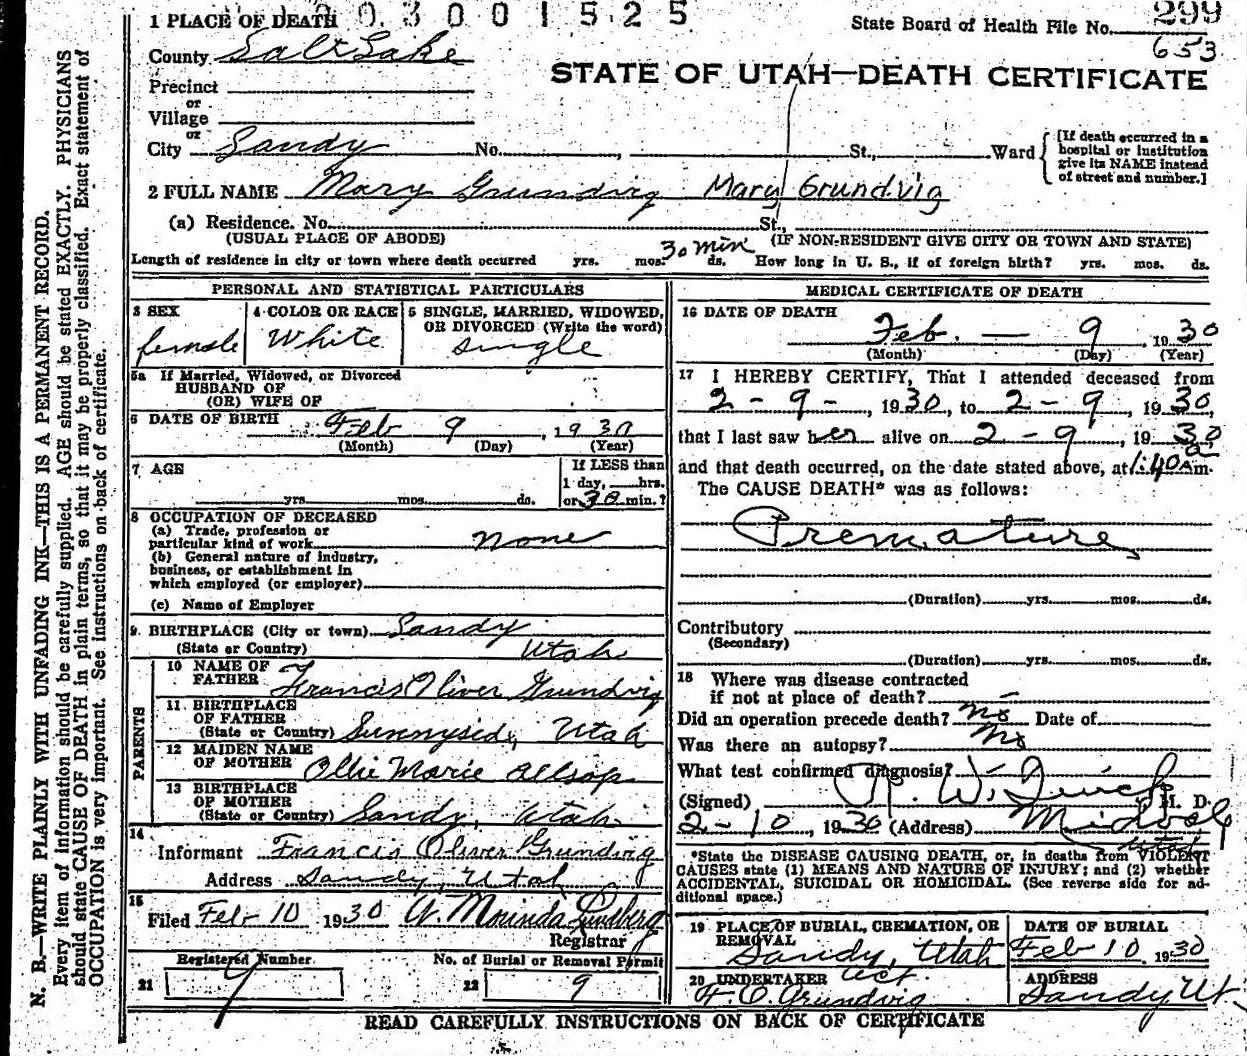 003001525
1 PLACE OF DEATH
State Board of Health File No. 299
653
County Salt Lake
STATE OF UTAH—DEATH CERTIFICATE
Precinct
or
Village
or
City Sandy No. , St., Ward
[If death occurred in a hospital or institution give its NAME instead of street and number.]
2 FULL NAME Mary Grundvig Mary Grundvig
(a) Residence. No. St.,
(USUAL PLACE OF ABODE) (IF NON-RESIDENT GIVE CITY OR TOWN AND STATE)
Length of residence in city or town where death occurred yrs. mos. 30 min ds. How long in U. S., if of foreign birth? yrs. mos. ds.
PERSONAL AND STATISTICAL PARTICULARS
3 SEX female
4 COLOR OR RACE White
5 SINGLE, MARRIED, WIDOWED, OR DIVORCED (Write the word) single
5a If Married, Widowed, or Divorced
HUSBAND OF
(OR) WIFE OF
6 DATE OF BIRTH Feb 9, 1930
(Month) (Day) (Year)
7 AGE yrs. mos. ds.
If LESS than
1 day, hrs.
or 30 min.?
8 OCCUPATION OF DECEASED
(a) Trade, profession or
particular kind of work none
(b) General nature of industry,
business, or establishment in
which employed (or employer)
(c) Name of Employer
9. BIRTHPLACE (City or town) Sandy
(State or Country) Utah
PARENTS
10 NAME OF FATHER Francis Oliver Grundvig
11 BIRTHPLACE OF FATHER
(State or Country) Sunnyside, Utah
12 MAIDEN NAME OF MOTHER Ollie Marie Allsop
13 BIRTHPLACE OF MOTHER
(State or Country) Sandy, Utah
14 Informant Francis Oliver Grundvig
Address Sandy, Utah
15 Filed Feb 10 1930 W. Morinda Lundberg
Registrar
Registered Number
21 9
No. of Burial or Removal Permit
22 9
MEDICAL CERTIFICATE OF DEATH
16 DATE OF DEATH
Feb. — 9, 1930
(Month) (Day) (Year)
17 I HEREBY CERTIFY, That I attended deceased from
2-9-, 1930, to 2-9, 1930,
that I last saw her alive on 2-9, 1930
and that death occurred, on the date stated above, at 1:40 a m.
The CAUSE DEATH* was as follows:
Premature
(Duration) yrs. mos. ds.
Contributory
(Secondary)
(Duration) yrs. mos. ds.
18 Where was disease contracted
if not at place of death? —
Did an operation precede death? no Date of
Was there an autopsy? No
What test confirmed diagnosis? —
(Signed) R. W. M. D.
2-10, 1930 (Address) Midvale
Utah
*State the DISEASE CAUSING DEATH, or, in deaths from VIOLENT
CAUSES state (1) MEANS AND NATURE OF INJURY; and (2) whether
ACCIDENTAL, SUICIDAL OR HOMICIDAL. (See reverse side for ad-
ditional space.)
19 PLACE OF BURIAL, CREMATION, OR REMOVAL
Sandy, Utah
DATE OF BURIAL
Feb 10 1930
20 UNDERTAKER Act
F. O. Grundvig
ADDRESS
Sandy Ut
READ CAREFULLY INSTRUCTIONS ON BACK OF CERTIFICATE
N. B.—WRITE PLAINLY WITH UNFADING INK—THIS IS A PERMANENT RECORD.
Every item of information should be carefully supplied. AGE should be stated EXACTLY. PHYSICIANS
should state CAUSE OF DEATH in plain terms, so that it may be properly classified. Exact statement of
OCCUPATION is very important. See instructions on back of certificate.